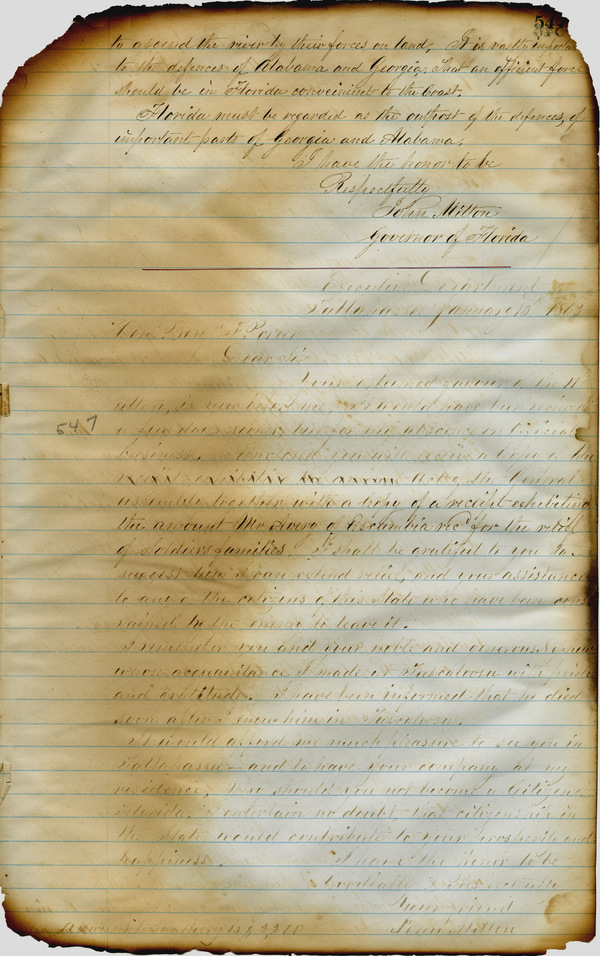 547
to ascend the river by their forces on land, It is vastly important
to the defences of Alabama and Georgia, that an efficient force
should be in Florida convenient to the Coast.
Florida must be regarded as the outpost of the defences, of
important parts of Georgia and Alabama.
I have the honor to be
Respectfully
John Milton
Governor of Florida
Executive Department
Tallahassee January 1863
Dear Sir
Your esteemed favour of the
is now before me, should have been received
a few days sooner but for my absence on Official
547
business. and you will receive a Copy of the
act of the General
assembly together with a Copy of a receipt exhibiting
the amount Mr Avery of Escambia recd for the relief
of Soldiers families. I shall be grateful to you to
suggest how I can extend relief, and your assistance
to any of the citizens of this State who have been cons
trained by the enemy to leave it.
I remember you and your noble and generous
whose acquaintance I made in Tuscaloosa with pride
and gratitude. I have been informed that he died
soon after I knew him in Tuscaloosa.
It would afford me much pleasure to see you in
Tallahassee and to have your company at my
residence, Why should you not become a Citizen
Florida, I entertain no doubt, that citizenship in
the State would contribute to your prosperity and
happiness. I have the honor to be
Cordially & Respectfully
Your friend
John Milton